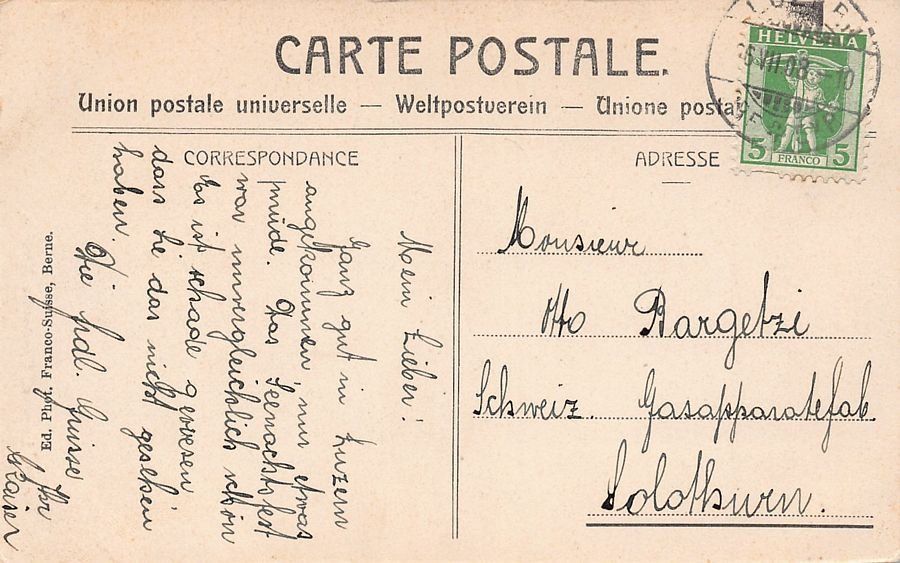 CARTE POSTALE.
Union postale universelle — Weltpostverein — Unione postale
CORRESPONDANCE
ADRESSE
HELVETIA
5 FRANCO 5
VII.08
Mein Lieber!
Ganz gut in Luzern
angekommen, nur etwas
müde. Das Seenachtsfest
war unvergleichlich schön
das ist schade gewesen
dass Sie das nicht gesehen
haben.
Die frdl. Grüsse
Ihr
Ed. Phot. Franco-Suisse, Berne.
Monsieur
Otto Bargetzi
Schweiz. Gasapparatefab.
Solothurn.